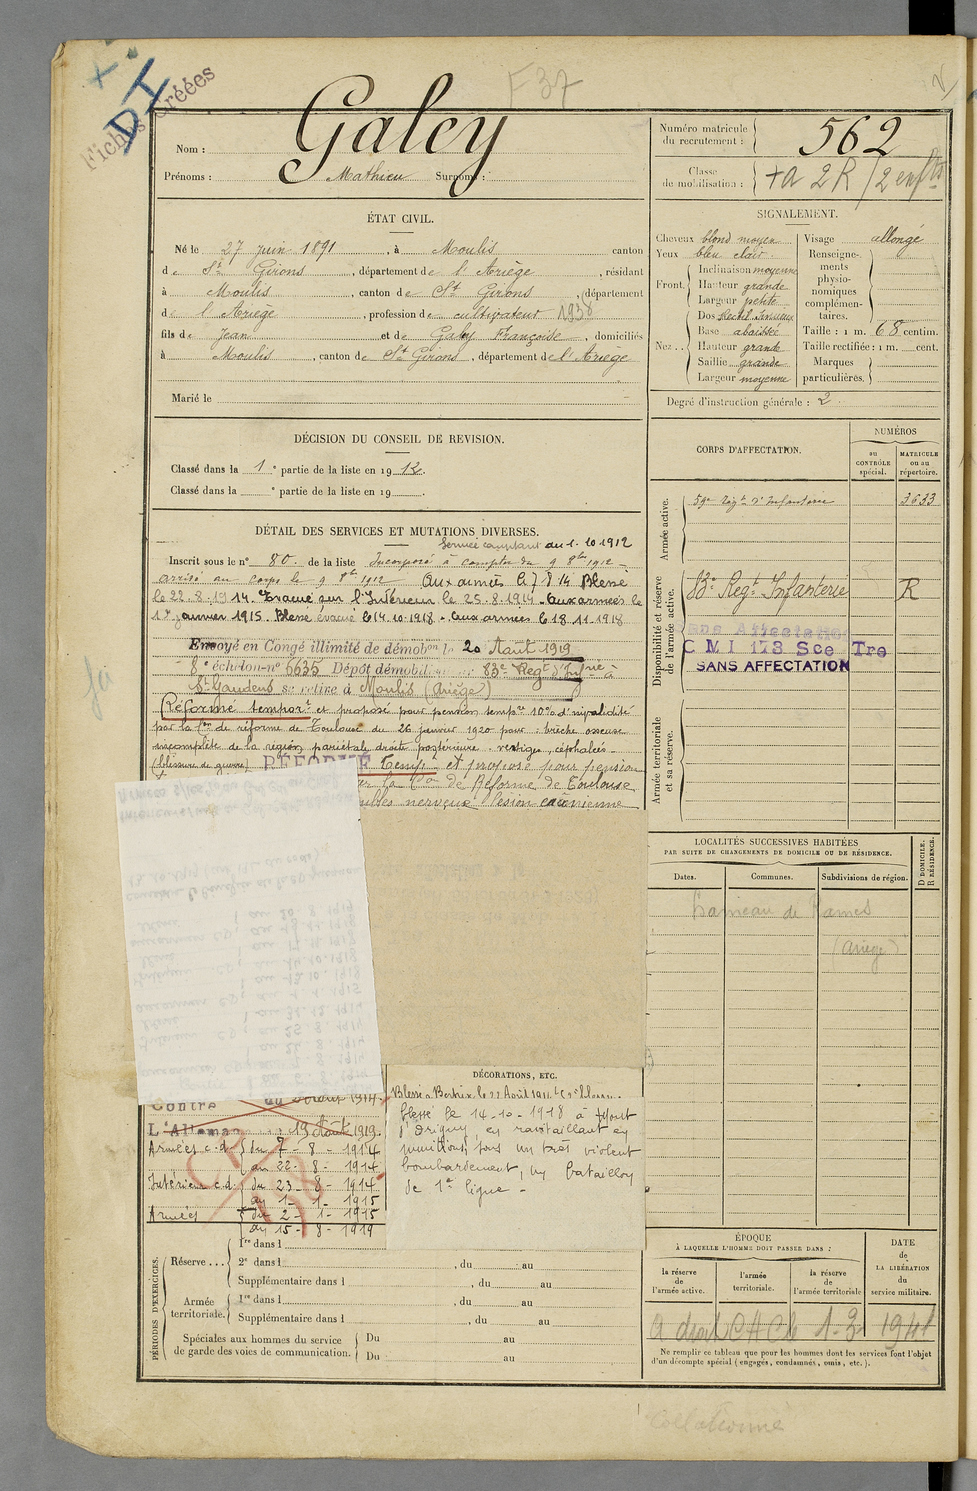 Fiches créées
DI
F 37
Nom : Galey
Prénoms : Mathieu Surnoms :
Numéro matricule du recrutement : 562
Classe de mobilisation : + a 2 R / 2 enfts
ÉTAT CIVIL.
Né le 27 juin 1891, à Moulis canton
de St Girons, département de l'Ariège, résidant
à Moulis, canton de St Girons, département
de l'Ariège, profession de cultivateur 1938
fils de Jean et de Galey Françoise, domiciliés
à Moulis, canton de St Girons, département de l'Ariège
Marié le
SIGNALEMENT.
Cheveux blond moyen
Yeux bleu clair.
Front. Inclinaison moyenne
Hauteur grande
Largeur petite
Nez.. Dos Rectil. sinueux
Base abaissée
Hauteur grande
Saillie grande
Largeur moyenne
Visage allongé
Renseignements physionomiques complémentaires.
Taille : 1 m. 68 centim.
Taille rectifiée : 1 m. cent.
Marques particulières.
Degré d'instruction générale : 2
DÉCISION DU CONSEIL DE REVISION.
Classé dans la 1e partie de la liste en 1912.
Classé dans la e partie de la liste en 19 .
CORPS D'AFFECTATION.
NUMÉROS
au CONTRÔLE spécial.
MATRICULE ou au répertoire.
Armée active.
59e Régt d'Infanterie 3633
Disponibilité et réserve de l'armée active.
83e Regt Infanterie R
Sans Affectation
C M I 173 Sce Tre
SANS AFFECTATION
Armée territoriale et sa réserve.
DÉTAIL DES SERVICES ET MUTATIONS DIVERSES.
Service comptant du 1.10.1912
Inscrit sous le n° 80. de la liste Incorporé à compter du 9 8bre 1912
arrivé au corps le 9 8bre 1912 Aux armées le 7 8 14 Blessé
le 22.8.1914. Evacué sur l'Intérieur le 25.8.1914. Aux armées le
1er janvier 1915. Blessé évacué le 14.10.1918. Aux armées le 18.11.1918
Envoyé en Congé illimité de démobon le 20 Août 1919
8e échelon n° 6635 Dépôt démobilisateur 83e Régt d'Infrie à
St Gaudens se retire à Moulis (Ariège)
Réformé tempore et proposé pour pension tempre 10% d'invalidité
par la Con de réforme de Toulouse du 26 janvier 1920 pour : brèche osseuse
incomplète de la région pariétale droite postérieure. vertiges, céphalées.
(blessure de guerre) RÉFORMÉ Tempe et proposé pour pension
par la Con de Réforme de Toulouse
troubles nerveux lésion crânienne
LOCALITÉS SUCCESSIVES HABITÉES
PAR SUITE DE CHANGEMENTS DE DOMICILE OU DE RÉSIDENCE.
Dates.
Communes.
Subdivisions de région.
D DOMICILE.
R RÉSIDENCE.
Hameau de
(Ariège)
Contre
L'Alleman 19 Août 1919
Armées c.d. du 7 - 8 - 1914
au 22 - 8 - 1914
Intérieur c.d. du 23 - 8 - 1914
au 1 - 1 - 1915
Armées du 2 - 1 - 1915
au 15 - 8 - 1919
DÉCORATIONS, ETC.
Blessé à Bertrix le 22 Août 1914
blessé le 14-10-1918 à Mont
d'Origny en ravitaillant en
munitions sous un très violent
bombardement, un bataillon
de 1re ligne -
PÉRIODES D'EXERCICES.
Réserve ...
1re dans l
2e dans l , du au
Supplémentaire dans l , du au
Armée territoriale.
1re dans l , du au
Supplémentaire dans l , du au
Spéciales aux hommes du service de garde des voies de communication.
Du au
Du au
ÉPOQUE
À LAQUELLE L'HOMME DOIT PASSER DANS :
la réserve de l'armée active.
l'armée territoriale.
la réserve de l'armée territoriale
DATE de LA LIBÉRATION du service militaire.
A droit CACh 1-3- 1941
Ne remplir ce tableau que pour les hommes dont les services font l'objet
d'un décompte spécial (engagés, condamnés, omis, etc.).
Collationné